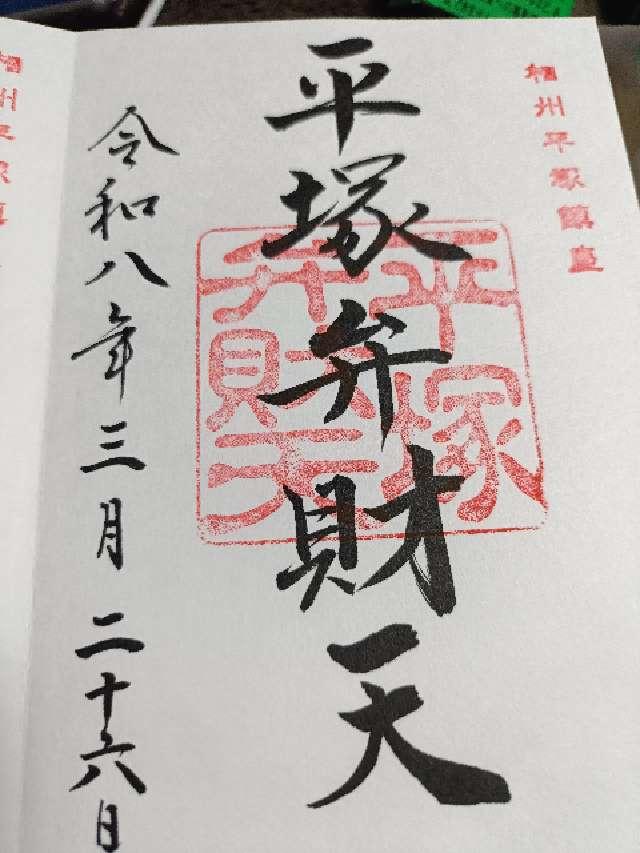 相州平塚鎮座
平塚弁財天
平塚
弁財天
令和八年三月二十六日